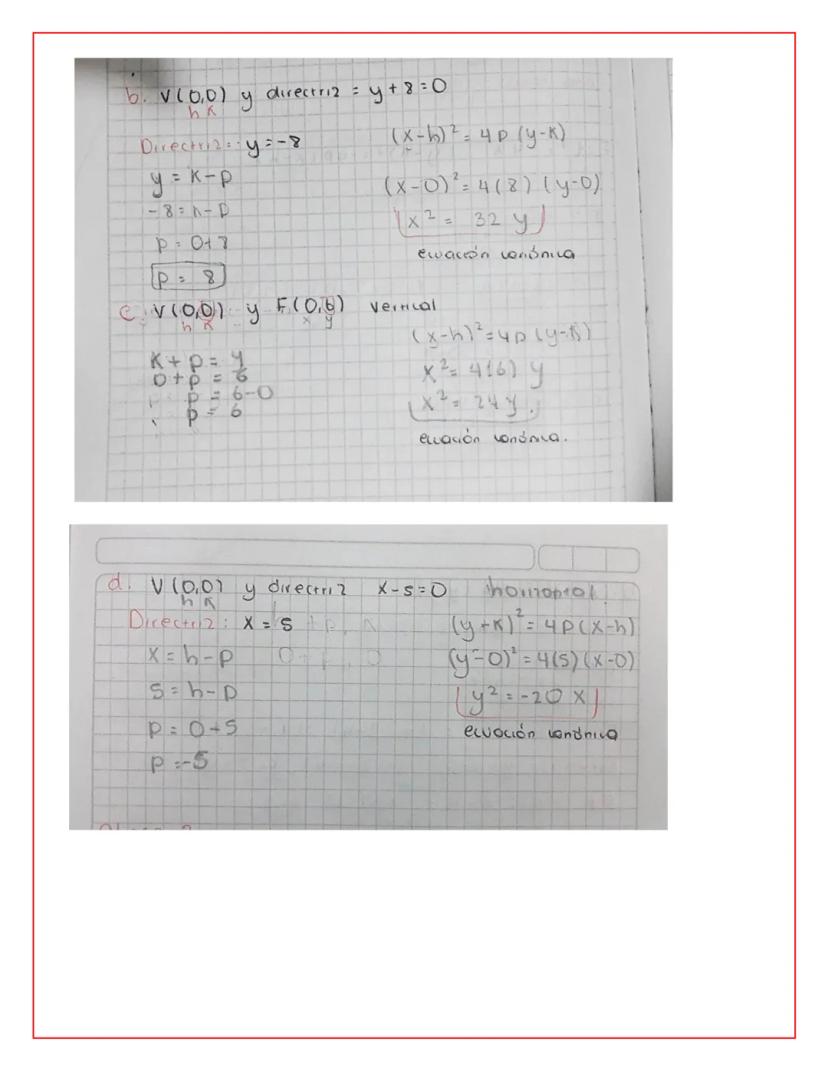 b. V(0,0) y directriz = y+8=0
h k
Directriz: y=-8
y = k-p
-8 = k-p
p = 0+8
p = 8
(x-h)² = 4p (y-k)
(x-0)² = 4(8) (y-0)
x² = 32 y
ecuación canónica
c. V(0,0) y F(0,6) vertical
h k x y
k + p = y
0 + p = 6
p = 6-0
p = 6
(x-h)² = 4p (y-k)
x² = 4(6) y
x² = 24 y.
ecuación canónica.
d. V(0,0) y directriz x-5=0 horizontal.
h k
Directriz: x = 5
x = h-p
5 = h-p
p = 0-5
p = -5
(y+k)² = 4p(x-h)
(y-0)² = 4(5)(x-0)
y² = -20 x
ecuación canónica